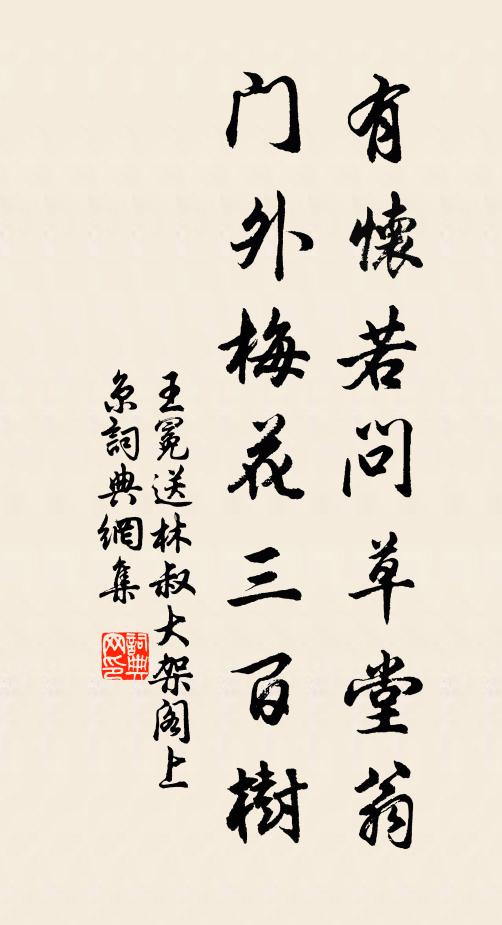 有懷若问草堂翁
门外梅花三百樹
王冕送林叔大架阁上
京詞典網集
詞典网印